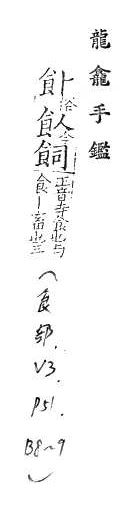 龍龕手鑑
俗飤今飼正音寺食也与食丨畜也三（食部. V3. P51. B8~9）